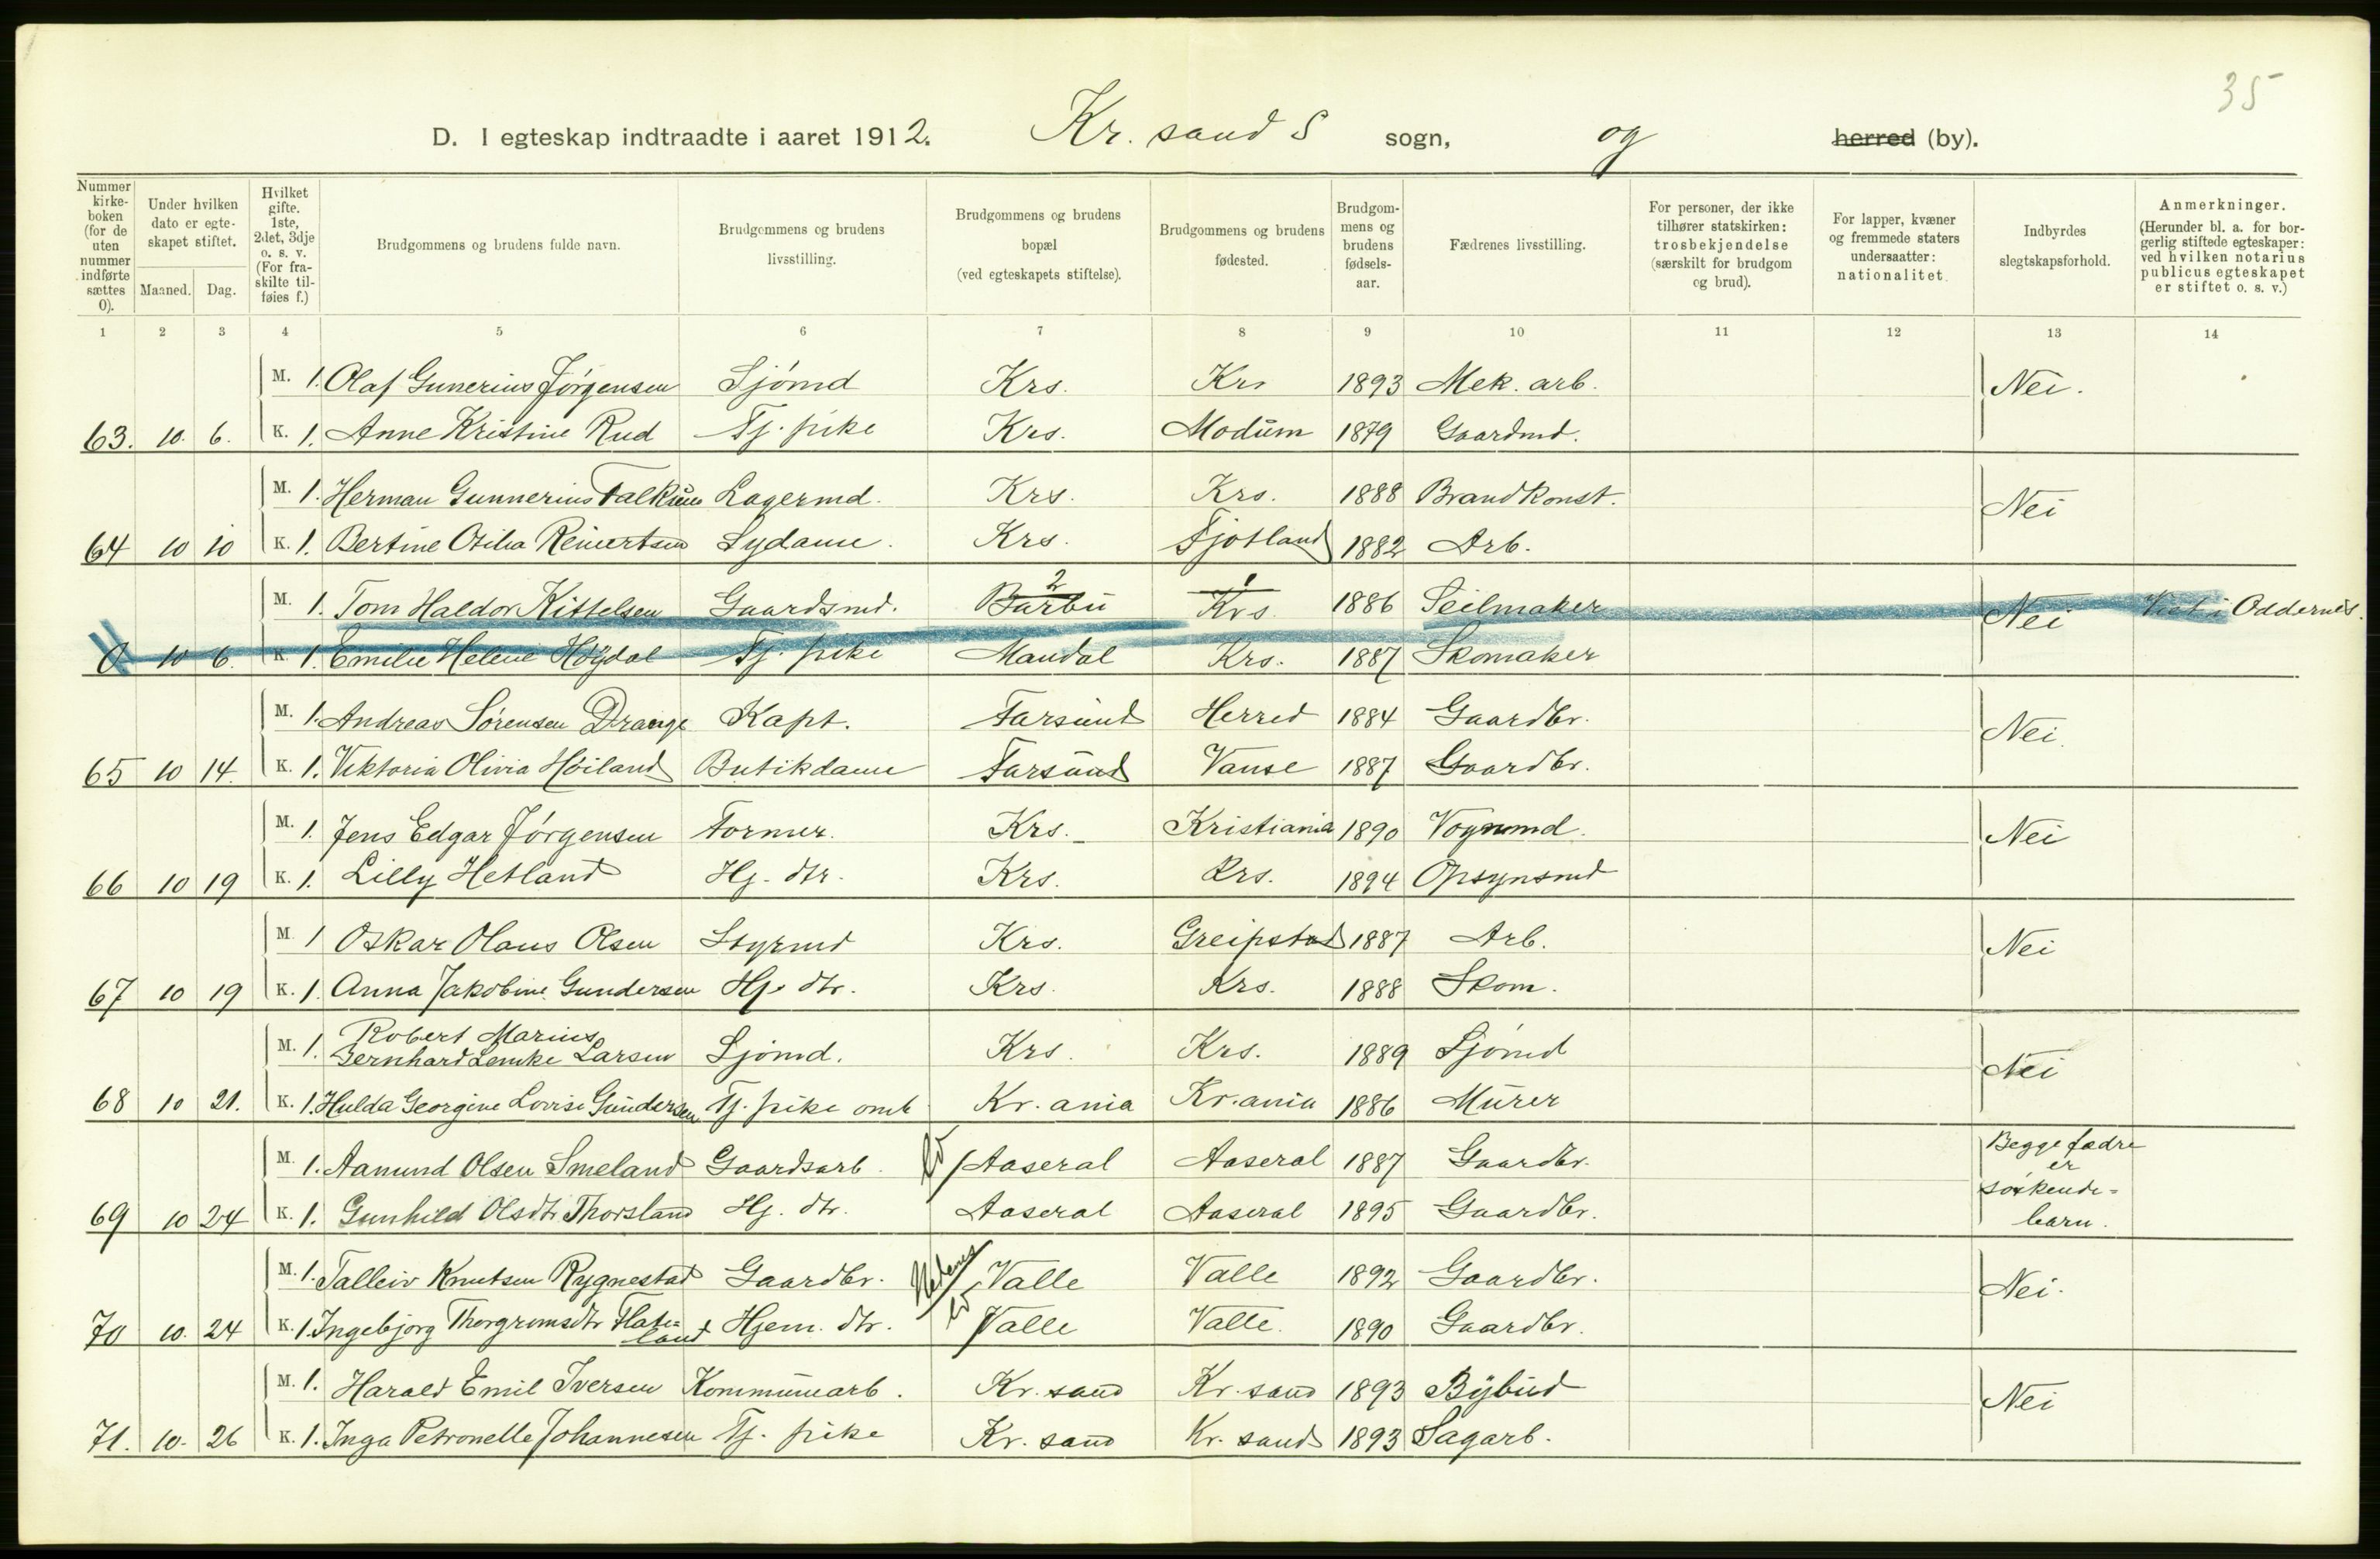 35
D. I egteskap indtraadte i aaret 1912. Kr. sand S sogn, og herred (by).
Nummer kirke-boken (for de uten nummer indførte sættes 0). Under hvilken dato er egte-skapet stiftet. Maaned. Dag. Hvilket gifte. 1ste, 2det, 3dje o. s. v. (For fra-skilte til-føies f.) Brudgommens og brudens fulde navn. Brudgommens og brudens livsstilling. Brudgommens og brudens bopæl (ved egteskapets stiftelse). Brudgommens og brudens fødested. Brudgom-mens og brudens fødsels-aar. Fædrenes livsstilling. For personer, der ikke tilhører statskirken: trosbekjendelse (særskilt for brudgom og brud). For lapper, kvæner og fremmede staters undersaatter: nationalitet. Indbyrdes slegtskapsforhold. Anmerkninger. (Herunder bl. a. for bor-gerlig stiftede egteskaper: ved hvilken notarius publicus egteskapet er stiftet o. s. v.)
1 2 3 4 5 6 7 8 9 10 11 12 13 14
M. 1. Olaf Gunerius Jørgensen Sjømd Krs. Krs 1893 Mek. arb. Nei.
63. 10. 6. K. 1. Anne Kristine Rud Tj. pike Krs. Modum 1879 Gaardmd.
M. 1. Herman Gunnerius Falkum Lagermd. Krs. Krs. 1888 Brandkonst. Nei
64 10 10 K. 1. Bertine Otilia Reinertsen Sydame. Krs. Fjotland 1882 Arb.
2 1
M. 1. Tom Haldor Kittelsen Gaardsmd. Barbu Krs. 1886 Seilmaker Nei Viet i Oddernes.
0 10 6. K. 1. Emilie Helene Høydal Tj. pike Mandal Krs. 1887 Skomaker
M. 1. Andreas Sørensen Drange Kapt. Farsund Herred 1884 Gaardbr. Nei.
65 10 14. K. 1. Viktoria Olivia Høiland Butikdame Farsund Vanse 1887 Gaardbr.
M. 1. Jens Edgar Jørgensen Former. Krs. Kristiania 1890 Vognmd. Nei
66 10 19 K. 1. Lilly Hetland Hj. dtr. Krs. Krs. 1894 Opsynsmd
M 1 Oskar Olaus Olsen Styrmd Krs. Greipstad 1887 Arb. Nei
67 10 19 K. 1. Anna Jakobine Gundersen Hj. dtr. Krs. Krs. 1888 Skom.
Robert Marius
M. 1. Bernhard Lemke Larsen Sjømd. Krs. Krs. 1889 Sjømd Nei
68 10 21. K. 1. Hulda Georgine Lovise Gundersen Tj. pike omb Kr. ania Kr. ania 1886 Murer
M. 1. Aamund Olsen Smeland Gaardsarb. Aaseral Aaseral 1887 Gaardbr. Begge fædre
er
søskende-
69 10 24 K. 1. Gunhild Olsdtr Thorsland Hj. dtr. Aaseral Aaseral 1895 Gaardbr. barn.
M. 1. Talleiv Knutsen Rygnestad Gaardbr. Nedenes Valle Valle 1892 Gaardbr. Nei.
70 10. 24 K. 1. Ingebjørg Thorgrimsdtr Flate- Hjem. dtr. Valle Valle. 1890 Gaardbr.
land
M. 1. Harald Emil Iversen Kommunearb. Kr. sand Kr. sand 1893 Bybud Nei
71. 10. 26 K. 1. Inga Petronelle Johannesen Tj. pike Kr. sand Kr. sand 1893 Sagarb.